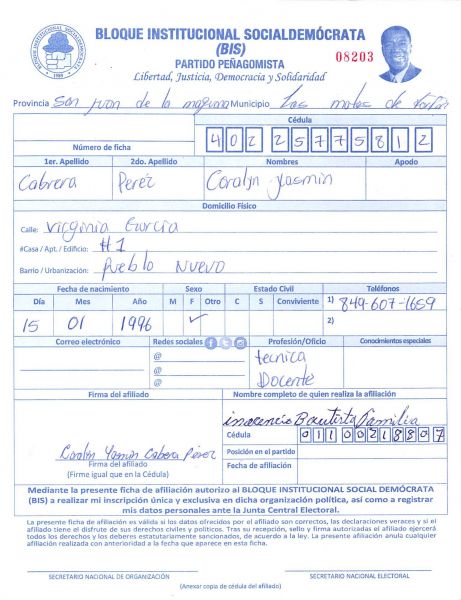 BLOQUE INSTITUCIONAL SOCIALDEMÓCRATA
(BIS)
08203
PARTIDO PEÑAGOMISTA
Libertad, Justicia, Democracia y Solidaridad
Provincia San Juan de la maguana Municipio Las matas de farfan
Cédula
Número de ficha 402 2577581 2
1er. Apellido 2do. Apellido Nombres Apodo
Cabrera Perez Coralyn Yasmin
Domicilio Físico
Calle: Virginia Garcia
#Casa / Apt. / Edificio: #1
Barrio / Urbanización: Pueblo Nuevo
Fecha de nacimiento Sexo Estado Civil Teléfonos
Día Mes Año M F Otro C S Conviviente 1) 849-607-1659
15 01 1996 ✓ 2)
Correo electrónico Redes sociales Profesión/Oficio Conocimientos especiales
@ tecnica
@ Docente
@
Firma del afiliado Nombre completo de quien realiza la afiliación
inocencio Bautista Familia
Cédula 01100218807
Coralyn Yasmin Cabrera Pérez
Posición en el partido
Firma del afiliado
Fecha de afiliación
(Firme igual que en la Cédula)
Mediante la presente ficha de afiliación autorizo al BLOQUE INSTITUCIONAL SOCIAL DEMÓCRATA
(BIS) a realizar mi inscripción única y exclusiva en dicha organización política, así como a registrar
mis datos personales ante la Junta Central Electoral.
La presente ficha de afiliación es válida si los datos ofrecidos por el afiliado son correctos, las declaraciones veraces y si el
afiliado tiene el disfrute de sus derechos civiles y políticos. Tras su recepción, sello y firma autorizadas el afiliado ejercerá
todos los derechos y los deberes estatutariamente sancionados, de acuerdo a la ley. La presente afiliación anula cualquier
afiliación realizada con anterioridad a la fecha que aparece en esta ficha.
SECRETARIO NACIONAL DE ORGANIZACIÓN SECRETARIO NACIONAL ELECTORAL
(Anexar copia de cédula del afiliado)